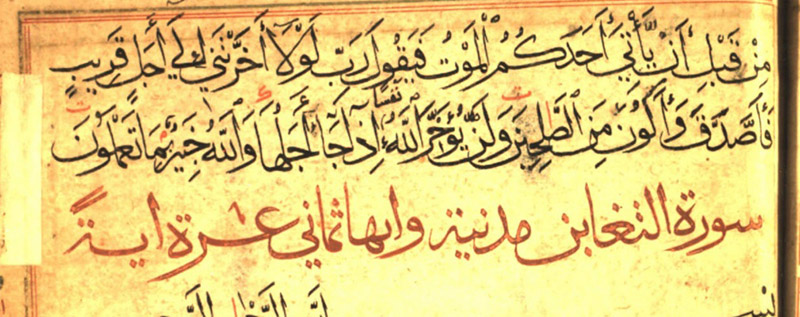 مِنْ قَبْلِ أَنْ يَأْتِيَ أَحَدَكُمُ ٱلْمَوْتُ فَيَقُولَ رَبِّ لَوْلَآ أَخَّرْتَنِي إِلَىٰ أَجَلٍ قَرِيبٍ
فَأَصَّدَّقَ وَأَكُونَ مِنَ ٱلصَّٰلِحِينَ وَلَنْ يُؤَخِّرَ ٱللَّهُ نَفْسًا إِذَا جَآءَ أَجَلُهَا وَٱللَّهُ خَبِيرٌ بِمَا تَعْمَلُونَ
سورة التغابن مدنية وايها ثماني عشرة اية